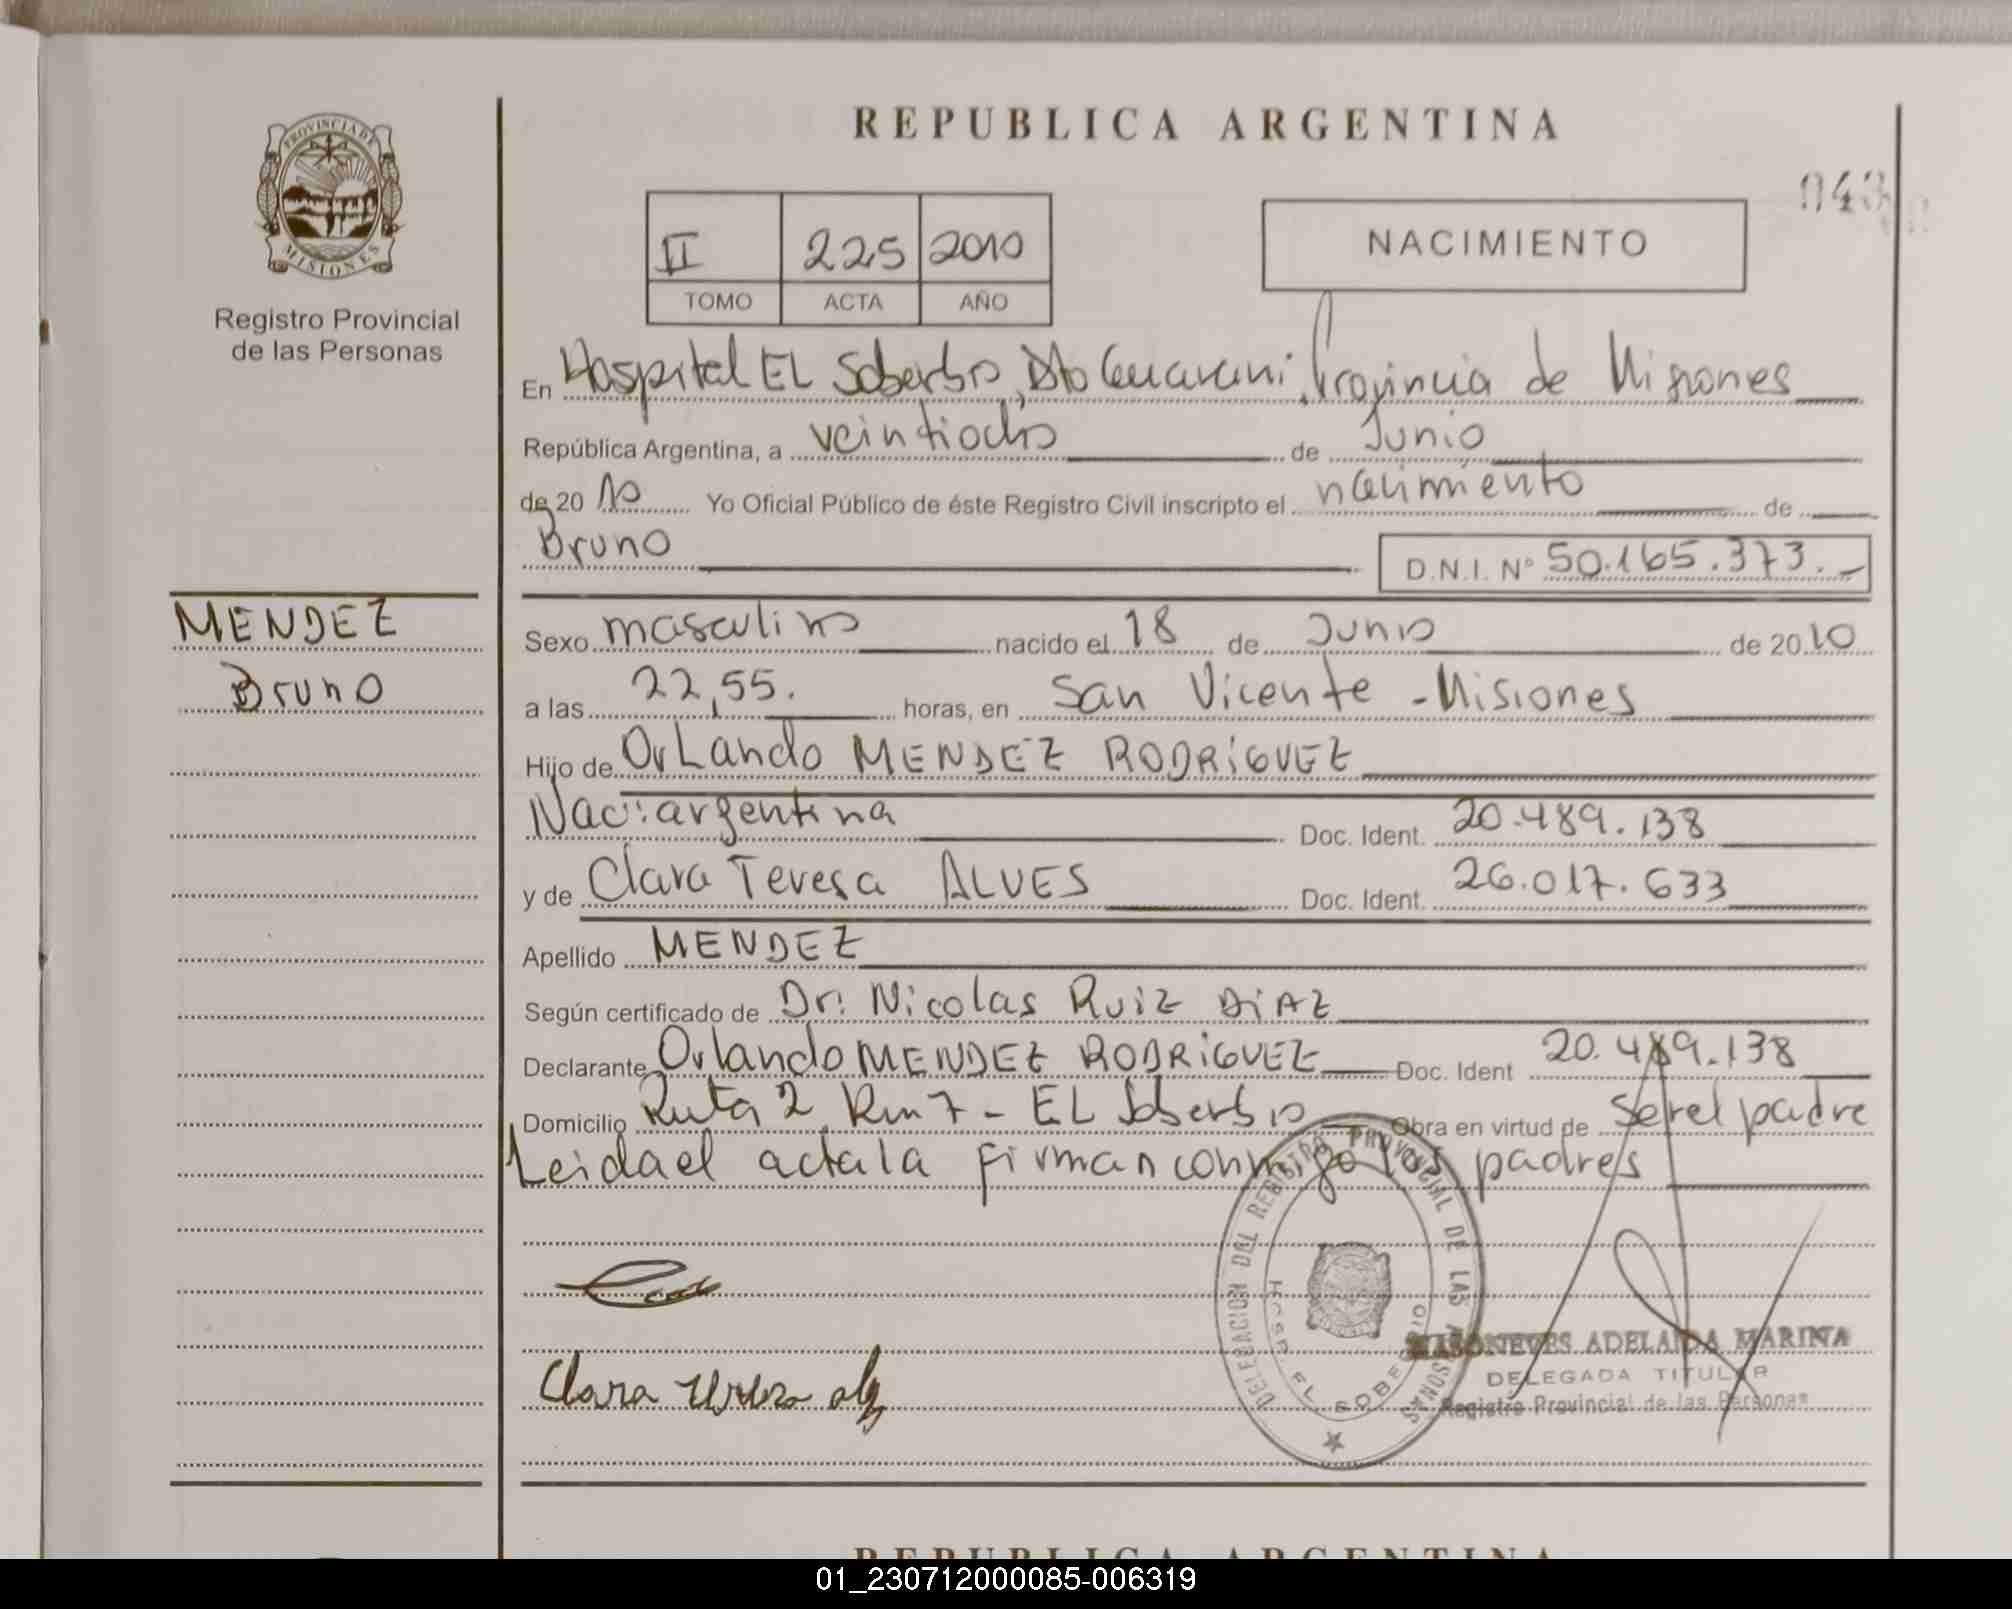 REPUBLICA ARGENTINA
PROVINCIA DE
MISIONES
Registro Provincial
de las Personas
043
II 225 2010
TOMO ACTA AÑO
NACIMIENTO
En Hospital EL Soberbio, Dto Guarani, Provincia de Misiones
República Argentina, a veintiocho de Junio
de 2010 Yo Oficial Público de éste Registro Civil inscripto el nacimiento de
Bruno D.N.I. Nº 50.165.373.-
MENDEZ
Bruno
Sexo masculino nacido el 18 de Junio de 2010
a las 22,55. horas, en San Vicente - Misiones
Hijo de OrLando MENDEZ RODRÍGUEZ
Nac: argentina Doc. Ident. 20.489.138
y de Clara Teresa ALVES Doc. Ident. 26.017.633
Apellido MENDEZ
Según certificado de Dr: Nicolas Ruiz DiAZ
Declarante Orlando MENDEZ RODRiGUEZ Doc. Ident 20.489.138
Domicilio Ruta 2 Km 7 - EL Soberbio Obra en virtud de ser el padre
Leida el acta la firman conmigo los padres
DELEGACION DEL REGISTRO PROVINCIAL DE LAS PERSONAS
EL SOBERBIO
Clara
ADELAIDA MARINA
DELEGADA TITULAR
Registro Provincial de las Personas
REPUBLICA ARGENTINA
01_230712000085-006319